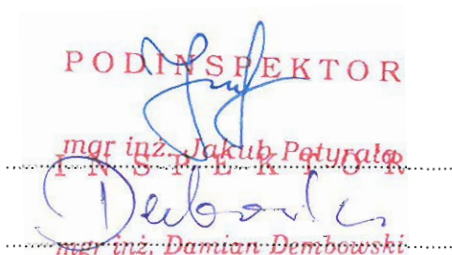 PODINSPEKTOR
mgr inż. Jakub Potyrała
INSPEKTOR
Dembowski
mgr inż. Damian Dembowski